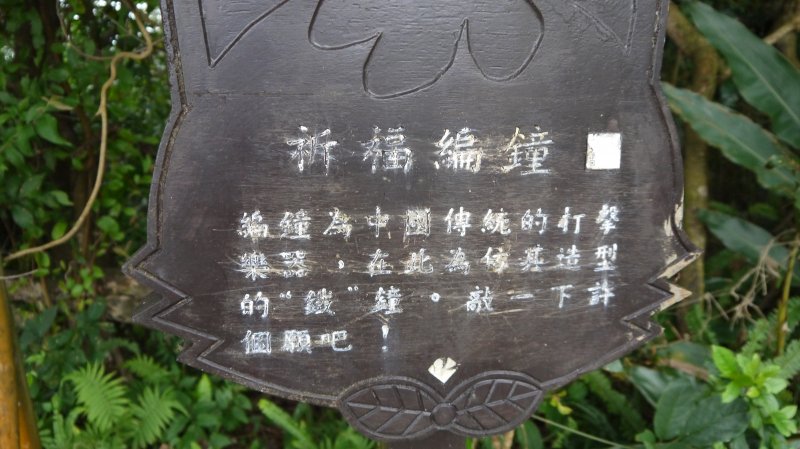 祈福編鐘
編鐘為中國傳統的打擊
樂器，在此為仿其造型
的“鐵”鐘。敲一下許
個願吧！